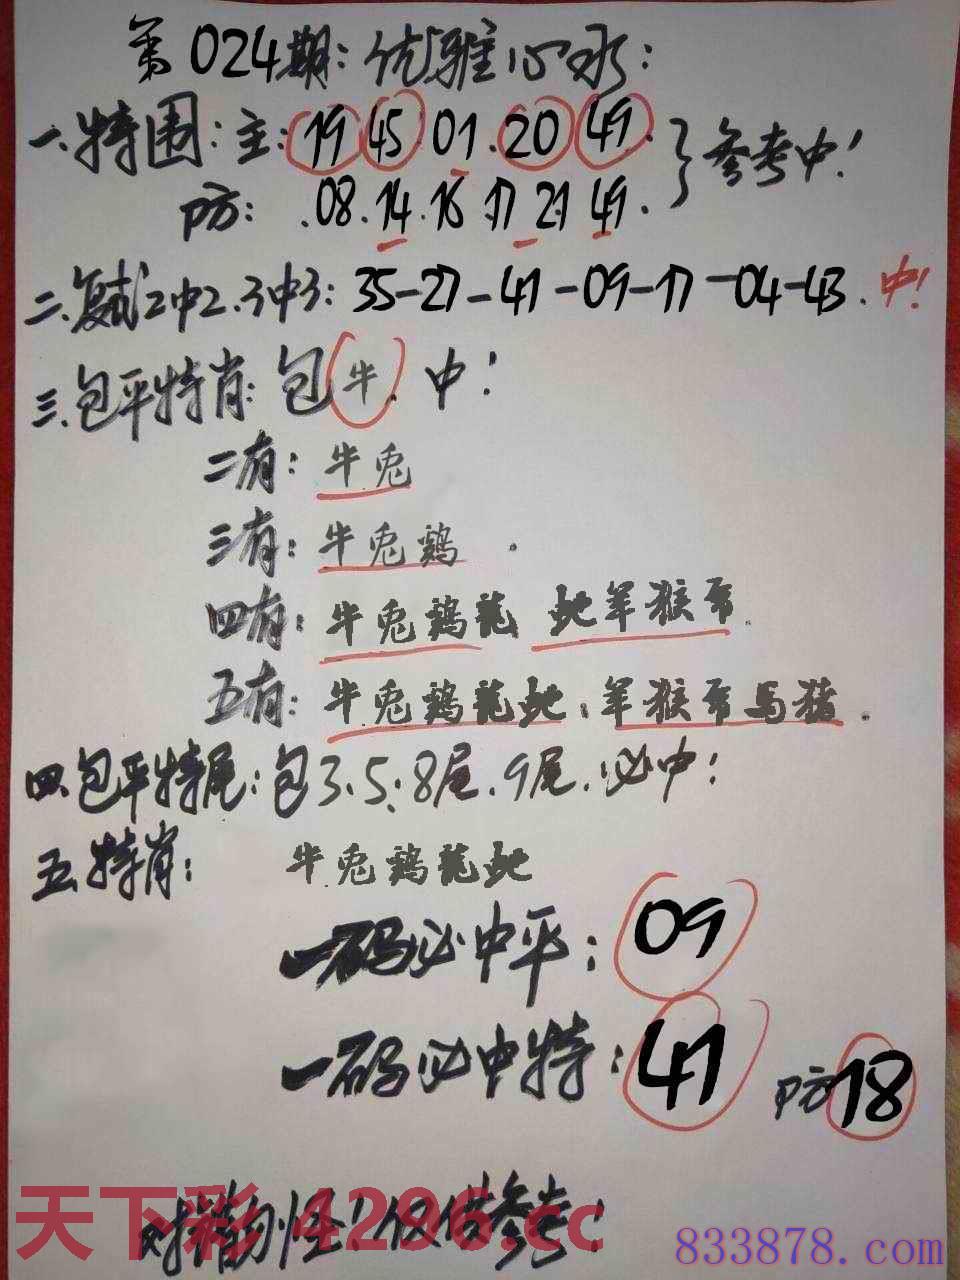 第024期：优雅心水：
一.特围：主：19 45 01.20 49.
}参考中！
防：.08.14.16 17 21 49.
二.复试2中2.3中3：35-27-41-09-17-04-43.中！
三.包平特肖：包牛.中！
二有：牛兔
三有：牛兔鸡.
四有：牛兔鸡龍 蛇羊猴
五有：牛兔鸡龍蛇：羊猴 马猪.
四.包平特尾：包3.5.8尾.9尾.必中！
五.特肖：牛兔鸡龍蛇
一码必中平：09
一码必中特：41 防18
天下彩 4296.cc
猜 怪！仅供参考！
833878.com